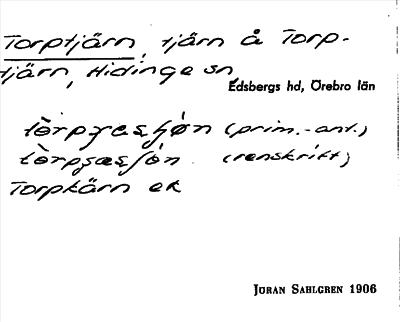 Torptjärn, tjärn å Torp-
tjärn, Hidinge sn,
Edsbergs hd, Örebro län
(prim.-ant.)
(renskrift)
Torpkärn ek
JÖRAN SAHLGREN 1906